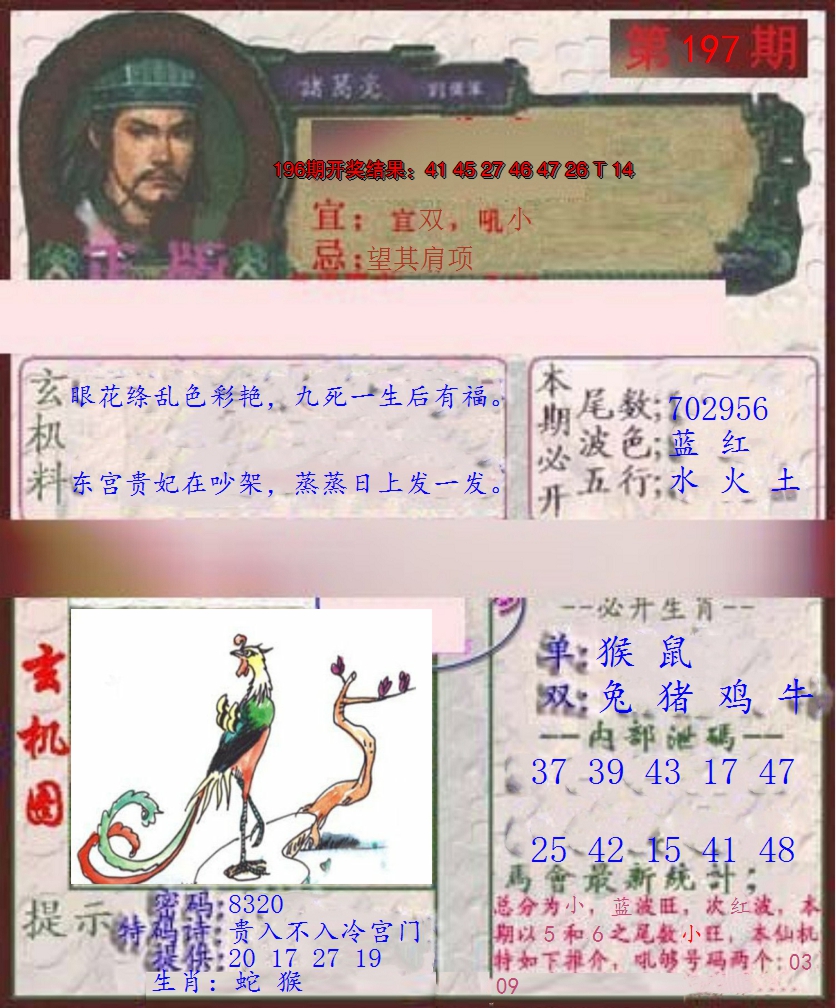 第197期
諸葛亮
196期开奖结果：41 45 27 46 47 26 T 14
宜：宜双，吼小
忌：望其肩项
正版
玄机料
眼花绦乱色彩艳，九死一生后有福。
东宫贵妃在吵架，蒸蒸日上发一发。
本期必开
尾数;702956
波色;蓝 红
五行;水 火 土
玄机图
--必开生肖--
单:猴 鼠
双:兔 猪 鸡 牛
一内部泄碼一
37 39 43 17 47
25 42 15 41 48
馬會最新統計；
总分为小，蓝波旺，次红波，本
期以5和6之尾数小旺，本仙机
特如下推介，吼够号码两个:03
09
提示
密码:8320
特码诗:贵入不入冷宫门
提供:20 17 27 19
生肖：蛇 猴